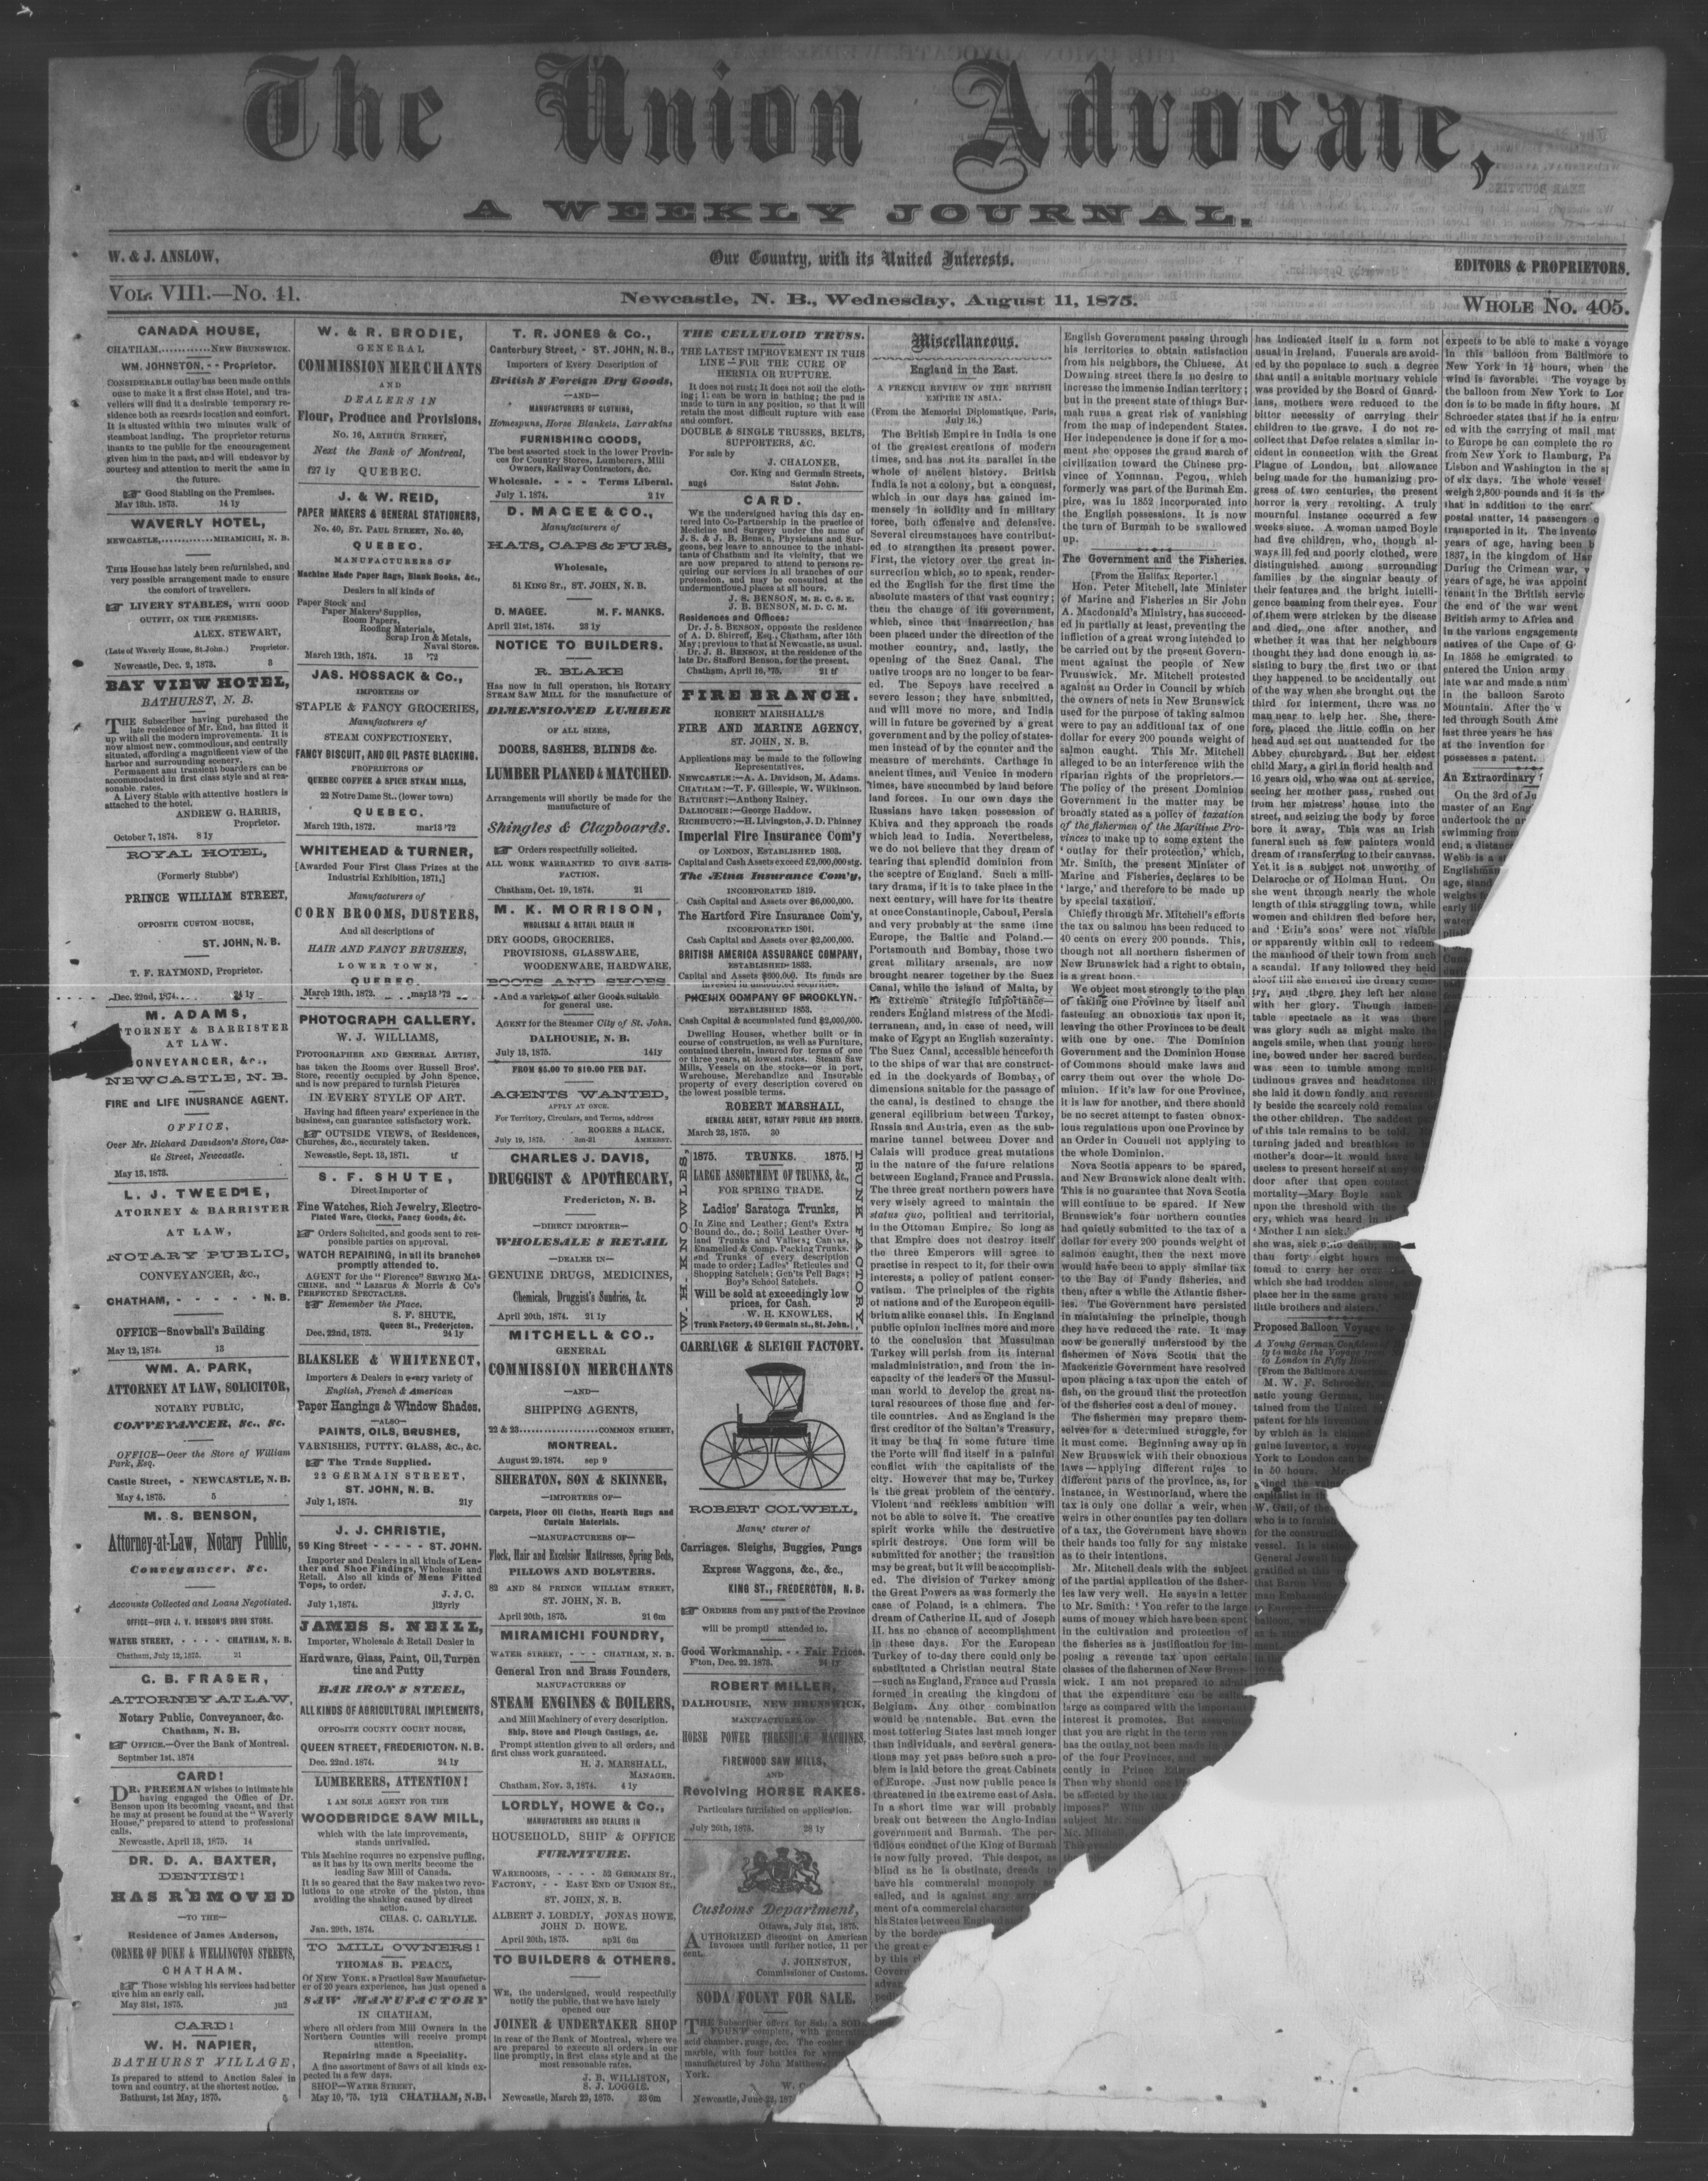 The Union Advocate,
A WEEKLY JOURNAL.
W. & J. ANSLOW,
Our Country, with its United Interests.
EDITORS & PROPRIETORS.
VOL. VIII.—No. 41.
Newcastle, N. B., Wednesday, August 11, 1875.
WHOLE No. 405.
CANADA HOUSE,
CHATHAM,............NEW BRUNSWICK.
WM. JOHNSTON, - - Proprietor.
CONSIDERABLE outlay has been made on this
ouse to make it a first class Hotel, and tra-
vellers will find it a desirable temporary re-
sidence both as regards location and comfort.
It is situated within two minutes walk of
steamboat landing. The proprietor returns
thanks to the public for the encouragement
given him in the past, and will endeavor by
courtesy and attention to merit the same in
the future.
Good Stabling on the Premises.
May 13th, 1873. 14 1y
WAVERLY HOTEL,
NEWCASTLE,............MIRAMICHI, N. B.
THIS House has lately been refurnished, and
very possible arrangement made to ensure
the comfort of travellers.
LIVERY STABLES, WITH GOOD
OUTFIT, ON THE PREMISES.
ALEX. STEWART,
(Late of Waverly House, St. John.) Proprietor.
Newcastle, Dec. 2, 1873. 3
BAY VIEW HOTEL,
BATHURST, N. B.
THE Subscriber having purchased the
late residence of Mr. End, has fitted it
up with all the modern improvements. It is
now almost new, commodious, and centrally
situated, affording a magnificent view of the
harbor and surrounding scenery.
Permanent and transient boarders can be
accommodated in first class style and at rea-
sonable rates.
A Livery Stable with attentive hostlers is
attached to the hotel.
ANDREW G. HARRIS,
Proprietor.
October 7, 1874. 8 1y
ROYAL HOTEL,
(Formerly Stubbs')
PRINCE WILLIAM STREET,
OPPOSITE CUSTOM HOUSE,
ST. JOHN, N. B.
T. F. RAYMOND, Proprietor.
Dec. 22nd, 1874. 24 1y
M. ADAMS,
TTORNEY & BARRISTER
AT LAW.
ONVEYANCER, &c.,
NEWCASTLE, N. B.
FIRE and LIFE INUSRANCE AGENT.
OFFICE,
Over Mr. Richard Davidson's Store, Cas-
tle Street, Newcastle.
May 13, 1873.
L. J. TWEEDIE,
ATORNEY & BARRISTER
AT LAW,
NOTARY PUBLIC,
CONVEYANCER, &c.,
CHATHAM, - - - - - N. B.
OFFICE—Snowball's Building
May 12, 1874. 13
WM. A. PARK,
ATTORNEY AT LAW, SOLICITOR,
NOTARY PUBLIC,
CONVEYANCER, &c., &c.
OFFICE—Over the Store of William
Park, Esq.
Castle Street, - NEWCASTLE, N. B.
May 4, 1875. 5
M. S. BENSON,
Attorney-at-Law, Notary Public,
Conveyancer, &c.
Accounts Collected and Loans Negotiated.
OFFICE—OVER J. V. BENSON'S DRUG STORE.
WATER STREET, - - - - CHATHAM, N. B.
Chatham, July 12, 1875. 21
C. B. FRASER,
ATTORNEY AT LAW,
Notary Public, Conveyancer, &c.
Chatham, N. B.
OFFICE.—Over the Bank of Montreal.
Septmber 1st, 1874
CARD!
DR. FREEMAN wishes to intimate his
having engaged the Office of Dr.
Benson upon its becoming vacant, and that
he may at present be found at the "Waverly
House," prepared to attend to professional
calls.
Newcastle, April 13, 1875. 14
DR. D. A. BAXTER,
DENTIST!
HAS REMOVED
—TO THE—
Residence of James Anderson,
CORNER OF DUKE & WELLINGTON STREETS,
CHATHAM.
Those wishing his services had better
give him an early call.
May 31st, 1875. jn2
CARD!
W. H. NAPIER,
BATHURST VILLAGE,
Is prepared to attend to Auction Sales in
town and country, at the shortest notice.
Bathurst, 1st May, 1875. 5
W. & R. BRODIE,
GENERAL
COMMISSION MERCHANTS
AND
DEALERS IN
Flour, Produce and Provisions,
No. 16, ARTHUR STREET,
Next the Bank of Montreal,
f27 1y QUEBEC.
J. & W. REID,
PAPER MAKERS & GENERAL STATIONERS,
No. 40, ST. PAUL STREET, No. 40,
QUEBEC.
MANUFACTURERS OF
Machine Made Paper Bags, Blank Books, &c.,
Dealers in all kinds of
Paper Stock and
Paper Makers' Supplies,
Room Papers,
Roofing Materials,
Scrap Iron & Metals,
Naval Stores.
March 12th, 1874. 13 '72
JAS. HOSSACK & Co.,
IMPORTERS OF
STAPLE & FANCY GROCERIES,
Manufacturers of
STEAM CONFECTIONERY,
FANCY BISCUIT, AND OIL PASTE BLACKING.
PROPRIETORS OF
QUEBEC COFFEE & SPICE STEAM MILLS,
22 Notre Dame St., (lower town)
QUEBEC.
March 12th, 1872. mar13 '72
WHITEHEAD & TURNER,
[Awarded Four First Class Prizes at the
Industrial Exhibition, 1871,]
Manufacturers of
CORN BROOMS, DUSTERS,
And all descriptions of
HAIR AND FANCY BRUSHES,
LOWER TOWN,
QUEBEC.
March 12th, 1872. mar13 '72
PHOTOGRAPH GALLERY.
W. J. WILLIAMS,
PHOTOGRAPHER AND GENERAL ARTIST,
has taken the Rooms over Russell Bros'.
Store, recently occupied by John Spence,
and is now prepared to turnish Pictures
IN EVERY STYLE OF ART.
Having had fifteen years' experience in the
business, can guarantee satisfactory work.
OUTSIDE VIEWS, of Residences,
Churches, &c., accurately taken.
Newcastle, Sept. 13, 1871. tf
S. F. SHUTE,
Direct Importer of
Fine Watches, Rich Jewelry, Electro-
Plated Ware, Clocks, Fancy Goods, &c.
Orders Solicited, and goods sent to res-
ponsible parties on approval.
WATCH REPAIRING, in all its branches
promptly attended to.
AGENT for the "Florence" SEWING MA-
CHINE, and "Lazarus & Morris & Co's
PERFECTED SPECTACLES.
Remember the Place.
S. F. SHUTE,
Queen St., Fredericton.
Dec. 22nd, 1873. 24 1y
BLAKSLEE & WHITENECT,
Importers & Dealers in every variety of
English, French & American
Paper Hangings & Window Shades,
—ALSO—
PAINTS, OILS, BRUSHES,
VARNISHES, PUTTY, GLASS, &c., &c.
The Trade Supplied.
22 GERMAIN STREET,
ST. JOHN, N. B.
July 1, 1874. 21y
J. J. CHRISTIE,
59 King Street - - - - - ST. JOHN.
Importer and Dealers in all kinds of Lea-
ther and Shoe Findings, Wholesale and
Retail. Also all kinds of Mens Fitted
Tops, to order.
J. J. C.
July 1, 1874. jl2yrly
JAMES S. NEILL,
Importer, Wholesale & Retail Dealer in
Hardware, Glass, Paint, Oil, Turpen
tine and Putty
BAR IRON & STEEL,
ALL KINDS OF AGRICULTURAL IMPLEMENTS,
OPPOSITE COUNTY COURT HOUSE,
QUEEN STREET, FREDERICTON, N. B.
Dec. 22nd. 1874. 24 1y
LUMBERERS, ATTENTION!
I AM SOLE AGENT FOR THE
WOODBRIDGE SAW MILL,
which with the late improvements,
stands unrivalled.
This Machine requres no expensive puffing,
as it has by its own merits become the
leading Saw Mill of Canada.
It is so geared that the Saw makes two revo-
lutions to one stroke of the piston, thus
avoiding the shaking caused by direct
action.
CHAS. C. CARLYLE.
Jan. 29th, 1874.
TO MILL OWNERS!
THOMAS B. PEACE,
Of NEW YORK, a Practical Saw Manufactur-
er of 20 years experience, has just opened a
SAW MANUFACTORY
IN CHATHAM,
where all orders from Mill Owners in the
Northern Counties will receive prompt
attention.
Repairing made a Speciality.
A fine assortment of Saws of all kinds ex-
pected in a few days.
SHOP—WATER STREET,
May 19, '75. 1y12 CHATHAM, N. B.
T. R. JONES & Co.,
Canterbury Street, - ST. JOHN, N. B.,
Importers of Every Description of
British & Foreign Dry Goods,
—AND—
MANUFACTURERS OF CLOTHING,
Homespuns, Horse Blankets, Larrakins
FURNISHING GOODS,
The best assorted stock in the lower Provin-
ces for Country Stores, Lumberers, Mill
Owners, Railway Contractors, &c.
Wholesale. - - - Terms Liberal.
July 1, 1874. 2 1v
D. MAGEE & CO.,
Manufacturers of
HATS, CAPS & FURS,
Wholesale,
51 KING ST., ST. JOHN, N. B.
D. MAGEE. M. F. MANKS.
April 21st, 1874. 23 1y
NOTICE TO BUILDERS.
R. BLAKE
Has now in full operation, his ROTARY
STEAM SAW MILL for the manufacture of
DIMENSIONED LUMBER
OF ALL SIZES,
DOORS, SASHES, BLINDS &c.
LUMBER PLANED & MATCHED.
Arrangements will shortly be made for the
manufacture of
Shingles & Clapboards.
Orders respectfully solicited.
ALL WORK WARRANTED TO GIVE SATIS-
FACTION.
Chatham, Oct. 19, 1874. 21
M. K. MORRISON,
WHOLESALE & RETAIL DEALER IN
DRY GOODS, GROCERIES,
PROVISIONS, GLASSWARE,
WOODENWARE, HARDWARE,
BOOTS AND SHOES,
And a variety of other Goods suitable
for general use.
AGENT for the Steamer City of St. John.
DALHOUSIE, N. B.
July 13, 1875. 141y
FROM $5.00 TO $10.00 PER DAY.
AGENTS WANTED,
APPLY AT ONCE.
For Territory, Circulars, and Terms, address
ROGERS & BLACK,
July 19, 1875. 3m-21 AMHERST.
CHARLES J. DAVIS,
DRUGGIST & APOTHECARY,
Fredericton, N. B.
—DIRECT IMPORTER—
WHOLESALE & RETAIL
—DEALER IN—
GENUINE DRUGS, MEDICINES,
Chemicals, Druggist's Sundries, &c.
April 20th, 1874. 21 1y
MITCHELL & CO.,
GENERAL
COMMISSION MERCHANTS
—AND—
SHIPPING AGENTS,
22 & 23....................COMMON STREET,
MONTREAL.
August 29, 1874. sep 9
SHERATON, SON & SKINNER,
—IMPORTERS OF—
Carpets, Floor Oil Cloths, Hearth Rugs and
Curtain Materials.
—MANUFACTURERS OF—
Flock, Hair and Excelsior Mattresses, Spring Beds,
PILLOWS AND BOLSTERS.
82 AND 84 PRINCE WILLIAM STREET,
ST. JOHN, N. B.
April 20th, 1875. 21 6m
MIRAMICHI FOUNDRY,
WATER STREET, - - - CHATHAM, N. B.
General Iron and Brass Founders,
MANUFACTURERS OF
STEAM ENGINES & BOILERS,
And Mill Machinery of every description.
Ship, Stove and Plough Castings, &c.
Prompt attention given to all orders, and
first class work guaranteed.
H. J. MARSHALL,
MANAGER.
Chatham, Nov. 3, 1874. 4 1y
LORDLY, HOWE & Co.,
MANUFACTURERS AND DEALERS IN
HOUSEHOLD, SHIP & OFFICE
FURNITURE.
WAREROOMS, - - - - 52 GERMAIN ST.,
FACTORY, - - EAST END OF UNION ST.,
ST. JOHN, N. B.
ALBERT J. LORDLY, JONAS HOWE,
JOHN D. HOWE.
April 20th, 1875. ap21 6m
TO BUILDERS & OTHERS.
WE, the undersigned, would respectfully
notify the public, that we have lately
opened our
JOINER & UNDERTAKER SHOP
in rear of the Bank of Montreal, where we
are prepared to execute all orders in our
line promptly, in first class style and at the
most reasonable rates.
J. B. WILLISTON,
S. J. LOGGIE.
Newcastle, March 29, 1875. 25 6m
THE CELLULOID TRUSS.
THE LATEST IMPROVEMENT IN THIS
LINE—FOR THE CURE OF
HERNIA OR RUPTURE.
It does not rust; It does not soil the cloth-
ing; It can be worn in bathing; the pad is
made to turn in any position, so that it will
retain the most difficult rupture with ease
and comfort.
DOUBLE & SINGLE TRUSSES, BELTS,
SUPPORTERS, &C.
For sale by
J. CHALONER,
Cor. King and Germain Streets,
aug4 Saint John.
CARD.
WE the undersigned having this day en-
tered into Co-Partnership in the practice of
Medicine and Surgery under the name of
J. S. & J. B. Benson, Physicians and Sur-
geons, beg leave to announce to the inhabi-
tants of Chatham and its vicinity, that we
are now prepared to attend to persons re-
quiring our services in all branches of our
profession, and may be consulted at the
undermentioned places at all hours.
J. S. BENSON, M. R. C. S. E.
J. B. BENSON, M. D. C. M.
Residences and Offices:
Dr. J. S. BENSON, opposite the residence
of A. D. Shirreff, Esq., Chatham, after 15th
May; previous to that at Newcastle, as usual.
Dr. J. B. BENSON, at the residence of the
late Dr. Stafford Benson, for the present.
Chatham, April 16, '75. 21 tf
FIRE BRANCH.
ROBERT MARSHALL'S
FIRE AND MARINE AGENCY,
ST. JOHN, N. B.
Applications may be made to the following
Representatives.
NEWCASTLE:—A. A. Davidson, M. Adams.
CHATHAM:—T. F. Gillespie, W. Wilkinson.
BATHURST:—Anthony Rainey.
DALHOUSIE:—George Haddow.
RICHIBUCTO:—H. Livingston, J. D. Phinney
Imperial Fire Insurance Com'y
OF LONDON, ESTABLISHED 1803.
Capital and Cash Assets exceed £2,000,000 stg.
The Ætna Insurance Com'y,
INCORPORATED 1819.
Cash Capital and Assets over $6,000,000.
The Hartford Fire Insurance Com'y,
INCORPORATED 1801.
Cash Capital and Assets over $2,500,000.
BRITISH AMERICA ASSURANCE COMPANY,
ESTABLISHED 1833.
Capital and Assets $600,000. Its funds are
invested in undoubted securities.
PHŒNIX COMPANY OF BROOKLYN.
ESTABLISHED 1853.
Cash Capital & accumulated fund $2,000,000.
Dwelling Houses, whether built or in
course of construction, as well as Furniture,
contained therein, insured for terms of one
or three years, at lowest rates. Steam Saw
Mills, Vessels on the stocks—or in port,
Warehouse, Merchandize and Insurable
property of every description covered on
the lowest possible terms.
ROBERT MARSHALL,
GENERAL AGENT, NOTARY PUBLIC AND BROKER.
March 23, 1875. 30
W. H. KNOWLES,
TRUNK FACTORY.
1875. TRUNKS. 1875.
LARGE ASSORTMENT OF TRUNKS, &c.,
FOR SPRING TRADE.
Ladies' Saratoga Trunks,
In Zinc and Leather; Gent's Extra
Bound do., do.; Solid Leather Over-
land Trunks and Valises; Canvas,
Enamelled & Comp. Packing Trunks,
and Trunks of every description
made to order; Ladies' Reticules and
Shopping Satchels; Gen'ts Pell Bags;
Boy's School Satchels.
Will be sold at exceedingly low
prices, for Cash.
W. H. KNOWLES,
Trunk Factory, 49 Germain st., St. John.
CARRIAGE & SLEIGH FACTORY.
ROBERT COLWELL,
Manu' cturer of
Carriages, Sleighs, Buggies, Pungs
Express Waggons, &c., &c.,
KING ST., FREDERCTON, N. B.
ORDERS from any part of the Province
will be promptl attended to.
Good Workmanship. - - Fair Prices.
F'ton, Dec. 22, 1873. 24 1y
ROBERT MILLER,
DALHOUSIE, NEW BRUNSWICK,
MANUFACTURER OF
HORSE POWER THRESHING MACHINES,
FIREWOOD SAW MILLS,
AND
Revolving HORSE RAKES.
Particulars furnished on application.
July 26th, 1875. 28 1y
Customs Department,
Ottawa, July 31st, 1875.
AUTHORIZED discount on American
Invoices until further notice, 11 per
cent.
J. JOHNSTON,
Commissioner of Customs.
SODA FOUNT FOR SALE.
THE Subscriber offers for Sale a SODA
FOUNT complete, with generator
acid chamber, guage, &c. The cooler
marble, with four bottles for
manufactured by John Matthew
York.
Newcastle, June 22, 187
Miscellaneous.
England in the East.
A FRENCH REVIEW OF THE BRITISH
EMPIRE IN ASIA.
(From the Memorial Diplomatique, Paris,
July 16.)
The British Empire in India is one
of the greatest creations of modern
times, and has not its parallel in the
whole of ancient history. British
India is not a colony, but a conquest,
which in our days has gained im-
mensely in solidity and in military
force, both offensive and defensive.
Several circumstances have contribut-
ed to strengthen its present power.
First, the victory over the great in-
surrection which, so to speak, render-
ed the English for the first time the
absolute masters of that vast country;
then the change of its government,
which, since that insurrection, has
been placed under the direction of the
mother country, and, lastly, the
opening of the Suez Canal. The
native troops are no longer to be fear-
ed. The Sepoys have received a
severe lesson; they have submitted,
and will move no more, and India
will in future be governed by a great
government and by the policy of states-
men instead of by the counter and the
measure of merchants. Carthage in
ancient times, and Venice in modern
times, have succumbed by land before
land forces. In our own days the
Russians have taken possession of
Khiva and they approach the roads
which lead to India. Nevertheless,
we do not believe that they dream of
tearing that splendid dominion from
the sceptre of England. Such a mili-
tary drama, if it is to take place in the
next century, will have for its theatre
at once Constantinople, Caboul, Persia
and very probably at the same time
Europe, the Baltic and Poland.—
Portsmouth and Bombay, those two
great military arsenals, are now
brought nearer together by the Suez
Canal, while the island of Malta, by
its extreme strategic importance—
renders England mistress of the Medi-
terranean, and, in case of need, will
make of Egypt an English suzerainty.
The Suez Canal, accessible henceforth
to the ships of war that are construct-
ed in the dockyards of Bombay, of
dimensions suitable for the passage of
the canal, is destined to change the
general eqilibrium between Turkey,
Russia and Austria, even as the sub-
marine tunnel between Dover and
Calais will produce great mutations
in the nature of the future relations
between England, France and Prussia.
The three great northern powers have
very wisely agreed to maintain the
status quo, political and territorial,
in the Ottoman Empire. So long as
that Empire does not destroy itself
the three Emperors will agree to
practise in respect to it, for their own
interests, a policy of patient conser-
vatism. The principles of the rights
of nations and of the European equili-
brium alike counsel this. In England
public opinion inclines more and more
to the conclusion that Mussulman
Turkey will perish from its internal
maladministration, and from the in-
capacity of the leaders of the Mussul-
man world to develop the great na-
tural resources of those fine and fer-
tile countries. And as England is the
first creditor of the Sultan's Treasury,
it may be that in some future time
the Porte will find itself in a painful
conflict with the capitalists of the
city. However that may be, Turkey
is the great problem of the century.
Violent and reckless ambition will
not be able to solve it. The creative
spirit works while the destructive
spirit destroys. One form will be
submitted for another; the transition
may be great, but it will be accomplish-
ed. The division of Turkey among
the Great Powers as was formerly the
case of Poland, is a chimera. The
dream of Catherine II. and of Joseph
II. has no chance of accomplishment
in these days. For the European
Turkey of to-day there could only be
substituted a Christian neutral State
—such as England, France and Prussia
formed in creating the kingdom of
Belgium. Any other combination
would be untenable. But even the
most tottering States last much longer
than individuals, and several genera-
tions may yet pass before such a pro-
blem is laid before the great Cabinets
of Europe. Just now public peace is
threatened in the extreme east of Asia.
In a short time war will probably
break out between the Anglo-Indian
government and Burmah. The per-
fidious conduct of the King of Burmah
is now fully proved. This despot, as
blind as he is obstinate, dreads to
have his commercial monopoly as-
sailed, and is against any
ment of a commercial character
his States between England
by the border
the great
by this
Govern
advan
English Government passing through
his territories to obtain satisfaction
from his neighbors, the Chinese. At
Downing street there is no desire to
increase the immense Indian territory;
but in the present state of things Bur-
mah runs a great risk of vanishing
from the map of independent States.
Her independence is done if for a mo-
ment she opposes the grand march of
civilization toward the Chinese pro-
vince of Younnan. Pegou, which
formerly was part of the Burmah Em-
pire, was in 1852 incorporated into
the English possessions. It is now
the turn of Burmah to be swallowed
up.
The Government and the Fisheries.
[From the Halifax Reporter.]
Hon. Peter Mitchell, late Minister
of Marine and Fisheries in Sir John
A. Macdonald's Ministry, has succeed-
ed in partially at least, preventing the
infliction of a great wrong intended to
be carried out by the present Govern-
ment against the people of New
Brunswick. Mr. Mitchell protested
against an Order in Council by which
the owners of nets in New Brunswick
used for the purpose of taking salmon
were to pay an additional tax of one
dollar for every 200 pounds weight of
salmon caught. This Mr. Mitchell
alleged to be an interference with the
riparian rights of the proprietors.—
The policy of the present Dominion
Government in the matter may be
broadly stated as a policy of taxation
of the fishermen of the Maritime Pro-
vinces to make up to some extent the
'outlay for their protection,' which,
Mr. Smith, the present Minister of
Marine and Fisheries, declares to be
'large,' and therefore to be made up
by special taxation.
Chiefly through Mr. Mitchell's efforts
the tax on salmon has been reduced to
40 cents on every 200 pounds. This,
though not all northern fishermen of
New Brunswick had a right to obtain,
is a great boon.
We object most strongly to the plan
of taking one Province by itself and
fastening an obnoxious tax upon it,
leaving the other Provinces to be dealt
with one by one. The Dominion
Government and the Dominion House
of Commons should make laws and
carry them out over the whole Do-
minion. If it's law for one Province,
it is law for another, and there should
be no secret attempt to fasten obnox-
ious regulations upon one Province by
an Order in Council not applying to
the whole Dominion.
Nova Scotia appears to be spared,
and New Brunswick alone dealt with.
This is no guarantee that Nova Scotia
will continue to be spared. If New
Brunswick's four northern counties
had quietly submitted to the tax of a
dollar for every 200 pounds weight of
salmon caught, then the next move
would have been to apply similar tax
to the Bay of Fundy fisheries, and
then, after a while the Atlantic fisher-
ies. The Government have persisted
in maintaining the principle, though
they have reduced the rate. It may
now be generally understood by the
fishermen of Nova Scotia that the
Mackenzie Government have resolved
upon placing a tax upon the catch of
fish, on the ground that the protection
of the fisheries cost a deal of money.
The fishermen may prepare them-
selves for a determined struggle, for
it must come. Beginning away up in
New Brunswick with their obnoxious
laws—applying different rules to
different parts of the province, as, for
instance, in Westmorland, where the
tax is only one dollar a weir, when
weirs in other counties pay ten dollars
of a tax, the Government have shown
their hands too fully for any mistake
as to their intentions.
Mr. Mitchell deals with the subject
of the partial application of the fisher-
ies law very well. He says in a letter
to Mr. Smith: 'You refer to the large
sums of money which have been spent
in the cultivation and protection of
the fisheries as a justification for im-
posing a revenue tax upon certain
classes of the fishermen of New Bruns-
wick. I am not prepared to admit
that the expenditure can be called
large as compared with the important
interest it promotes. But assuming
that you are right in the term you
has the outlay not been made in
of the four Provinces, and
cently in Prince Edward
Then why should one
be affected by the tax
impose?' With
subject Mr. Smith
Mr. Mitchell
has indicated itself in a form not
usual in Ireland. Funerals are avoid-
ed by the populace to such a degree
that until a suitable mortuary vehicle
was provided by the Board of Guard-
ians, mothers were reduced to the
bitter necessity of carrying their
children to the grave. I do not re-
collect that Defoe relates a similar in-
cident in connection with the Great
Plague of London, but allowance
being made for the humanizing pro-
gress of two centuries, the present
horror is very revolting. A truly
mournful instance occurred a few
weeks since. A woman named Boyle
had five children, who, though al-
ways ill fed and poorly clothed, were
distinguished among surrounding
families by the singular beauty of
their features and the bright intelli-
gence beaming from their eyes. Four
of them were stricken by the disease
and died, one after another, and
whether it was that her neighbours
thought they had done enough in as-
sisting to bury the first two or that
they happened to be accidentally out
of the way when she brought out the
third for interment, there was no
man near to help her. She, there-
fore, placed the little coffin on her
head and set out unattended for the
Abbey churchyard. But her eldest
child Mary, a girl in florid health and
16 years old, who was out at service,
seeing her mother pass, rushed out
from her mistress' house into the
street, and seizing the body by force
bore it away. This was an Irish
funeral such as few painters would
dream of transferring to their canvass.
Yet it is a subject not unworthy of
Delaroche or of Holman Hunt. On
she went through nearly the whole
length of this straggling town, while
women and children fled before her,
and 'Erin's sons' were not visible
or apparently within call to redeem
the manhood of their town from such
a scandal. If any followed they held
aloof till she entered the dreary ceme-
try, and there they left her alone
with her glory. Though lamen-
table spectacle as it was there
was glory such as might make the
angels smile, when that young hero-
ine, bowed under her sacred burden,
was seen to tumble among multi-
tudinous graves and headstones till
she laid it down fondly and reverent-
ly beside the scarcely cold remains of
the other children. The saddest part
of this tale remains to be told.
turning jaded and breathless to
mother's door—it would
useless to present herself at any
door after that open contact
mortality—Mary Boyle sank
upon the threshold with the
cry, which was heard in
'Mother I am sick.'
she was, sick unto death, and
than forty eight hours
found to carry her over
which she had trodden alone,
place her in the same grave
little brothers and sisters.'
Proposed Balloon Voyage to
A Young German Confident of
ty to make the Voyage from
to London in Fifty Hours
[From the Baltimore American
M. W. F. Schroeder, an
astic young German,
tained from the United
patent for his invention
by which as is claimed
guine inventor, a voyage
York to London can be
in 50 hours. Mr.
capitalist in th
W. Gail, of the
who is to furnish
for the construction
vessel. It is stated
General Jewell
gratified at this
expects to be able to make a voyage
in this balloon from Baltimore to
New York in 1½ hours, when the
wind is favorable. The voyage by
the balloon from New York to Lon
don is to be made in fifty hours. M
Schroeder states that if he is entru
ed with the carrying of mail mat
to Europe he can complete the ro
from New York to Hamburg, Pa
Lisbon and Washington in the
of six days. The whole vessel
weigh 2,800 pounds and it is the
that in addition to the
postal matter, 14 passengers
transported in it. The invento
years of age, having been b
1837, in the kingdom of Han
During the Crimean war,
years of age, he was appoint
tenant in the British servic
the end of the war went
British army to Africa and
in the various engagements
natives of the Cape of G
In 1858 he emigrated to
entered the Union army
late war and made a num
in the balloon Sarato
Mountain. After the w
led through South Ame
last three years he has
at the invention for
possesses a patent.
An Extraordinary
On the 3rd of Ju
master of an Eng
undertook the
swimming from
end, a distance
Webb is a
Englishman
age, stand
weighs
early
water